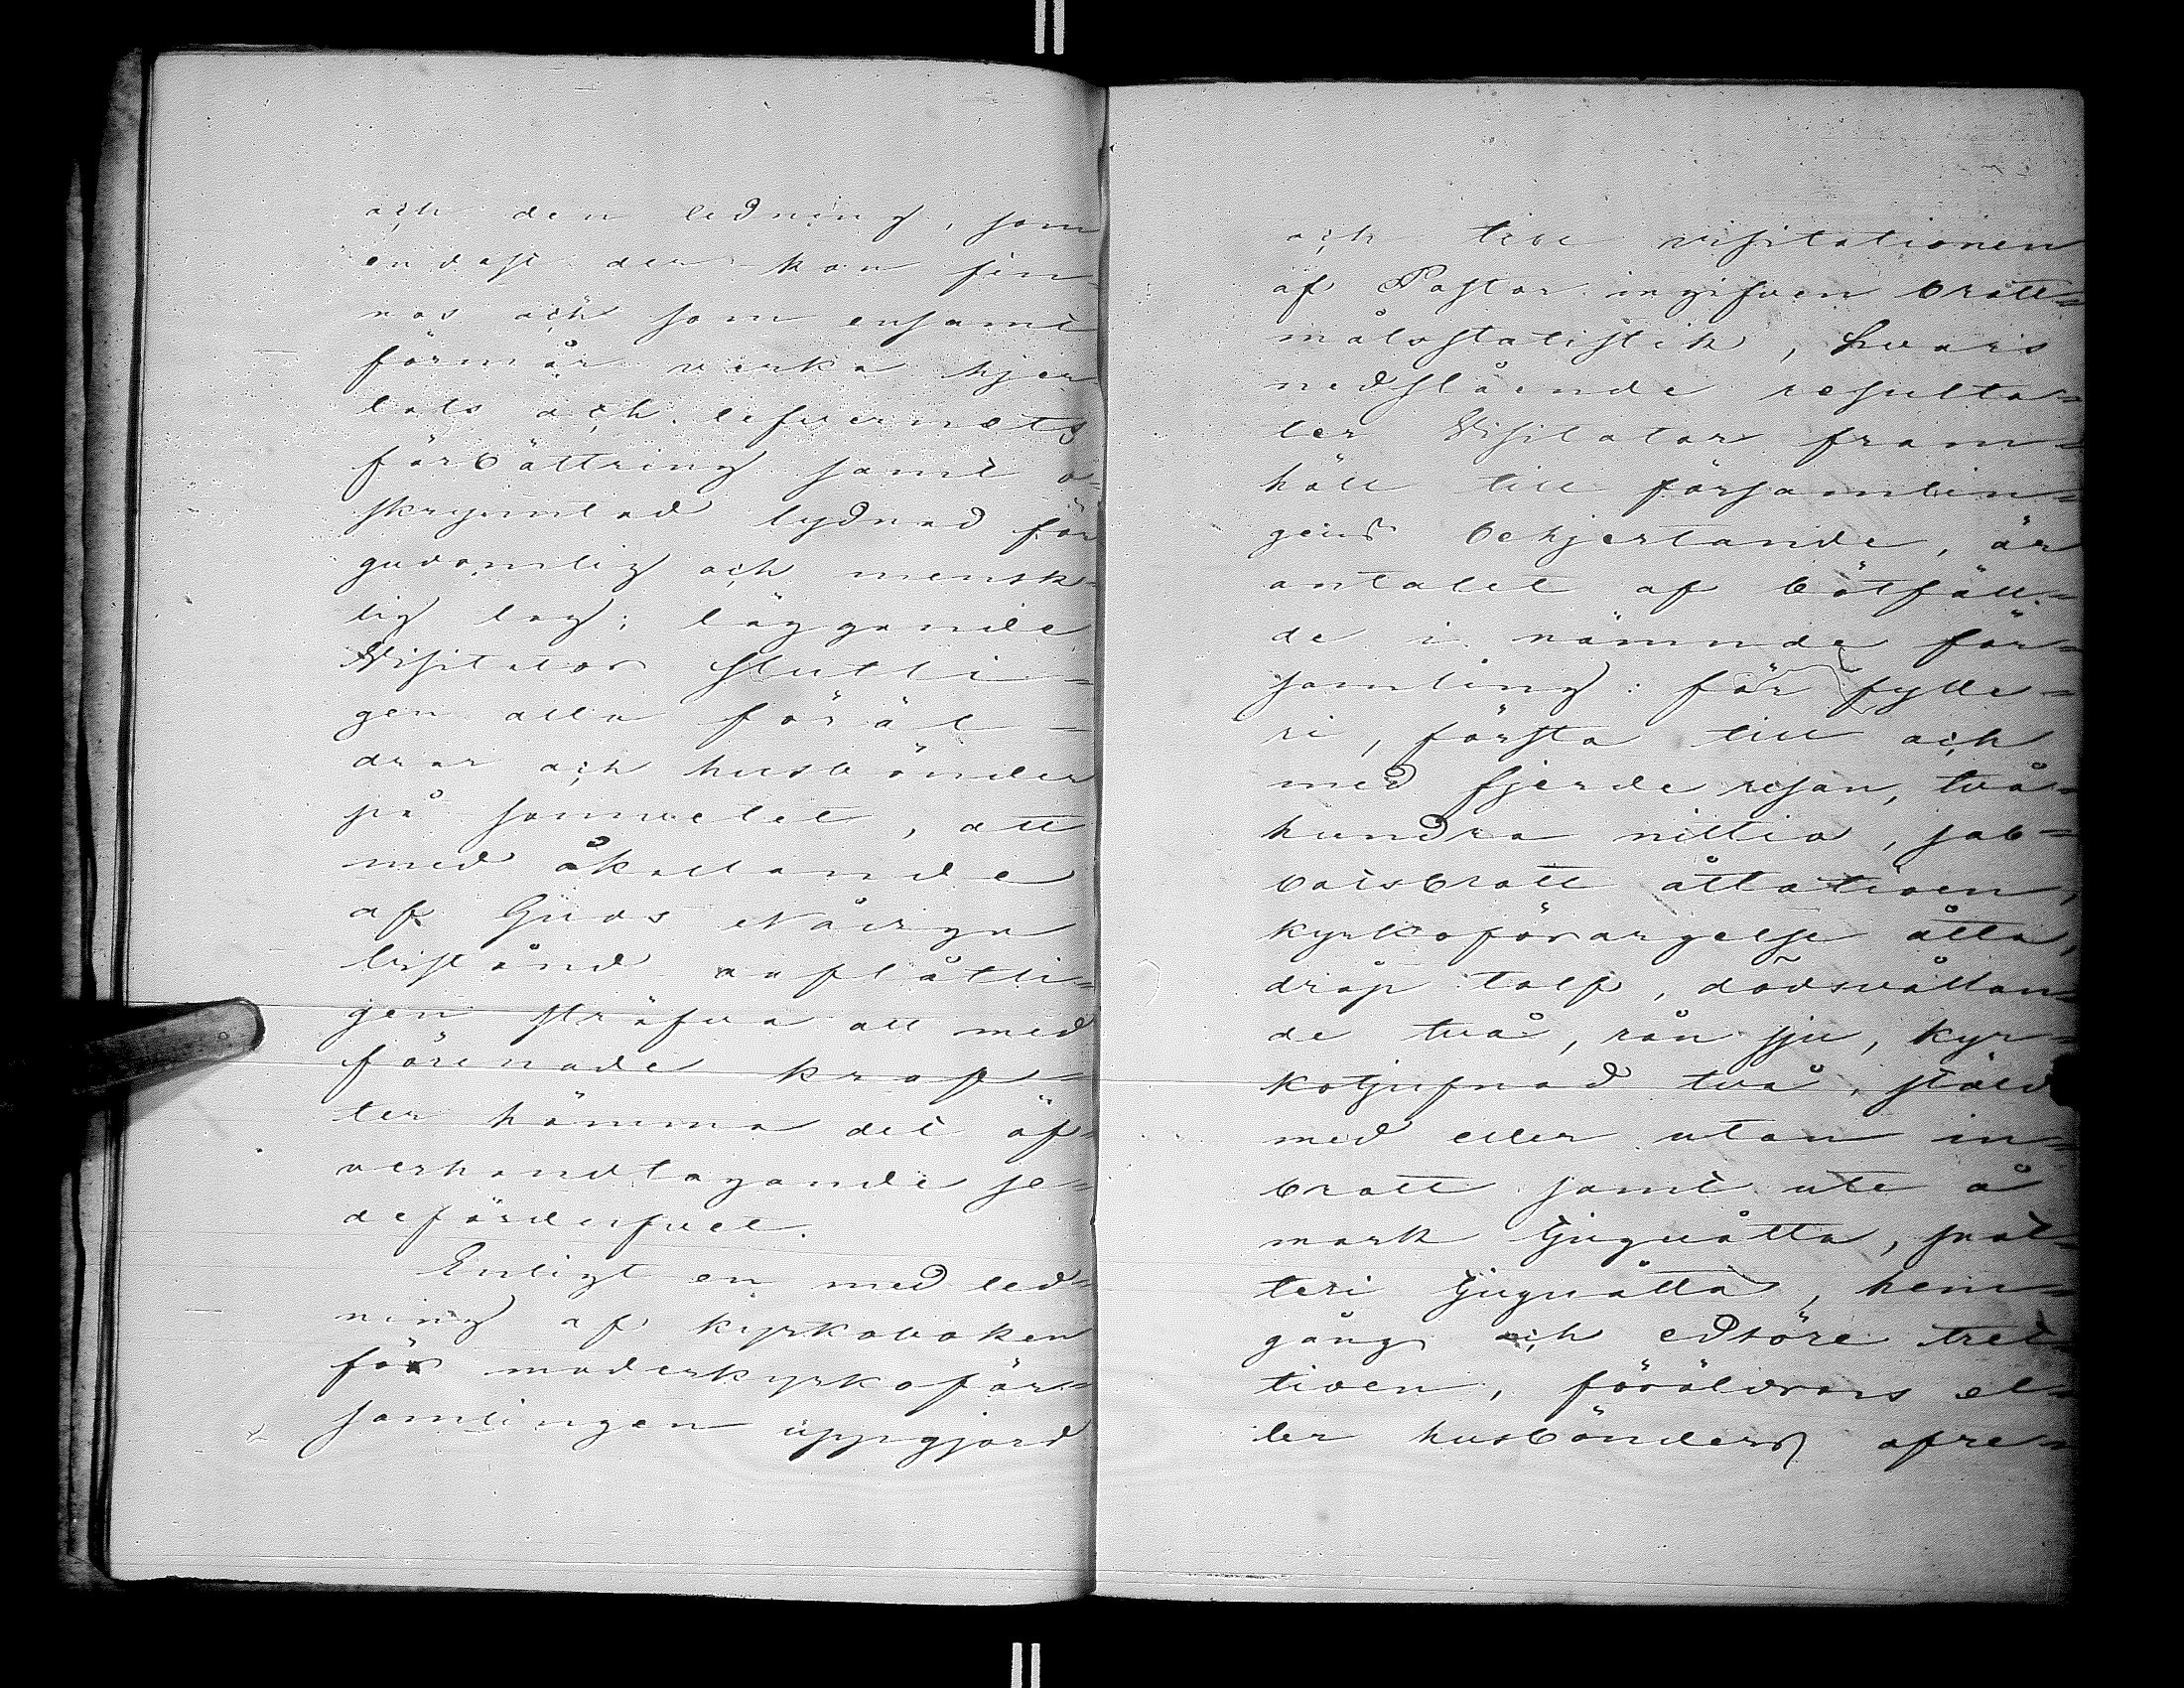 och den ledning, som
endast der kan fin-
nas och som ensamt
förmår verka hjer-
tats och lefvernets
förbättring samt o=
skrymtad lydnad för
gudomlig och mensk-
lig lag; läggande
Visitator slutli-
gen alla föräl-
drar och husbönder
på samvetet, att
med åkallande
af Guds nådiga
bistånd oaflåtli=
gen sträfva att med
förenade kraf-
ter hämma det öf-
verhandtagande se-
deförderfvet.
Enligt en med led-
ning af kyrkoboken
för moderkyrkoför-
samlingen uppgjord
och till visitationen
af Pastor ingifven brott=
målsstatistik, hvars
nedslående resulta=
ter Visitator fram-
höll till församlin=
gens behjertande, är
antalet af bötfäll-
de i nämnde för-
samling: för fylle=
ri, första till och
med fjerde resan, två-
hundra nittio, sab-
batsbrott åttatioen,
kyrkoförargelse åtta,
dråp tolf, dödsvållan-
de två, rån sju, kyr-
kotjufnad två, stöld
med eller utan in-
brott samt ute å
mark tjuguåtta, snat-
teri tjuguåtta, hem-
gång och edsöre tret-
tioen, föräldrars el-
ler husbönders ofre-